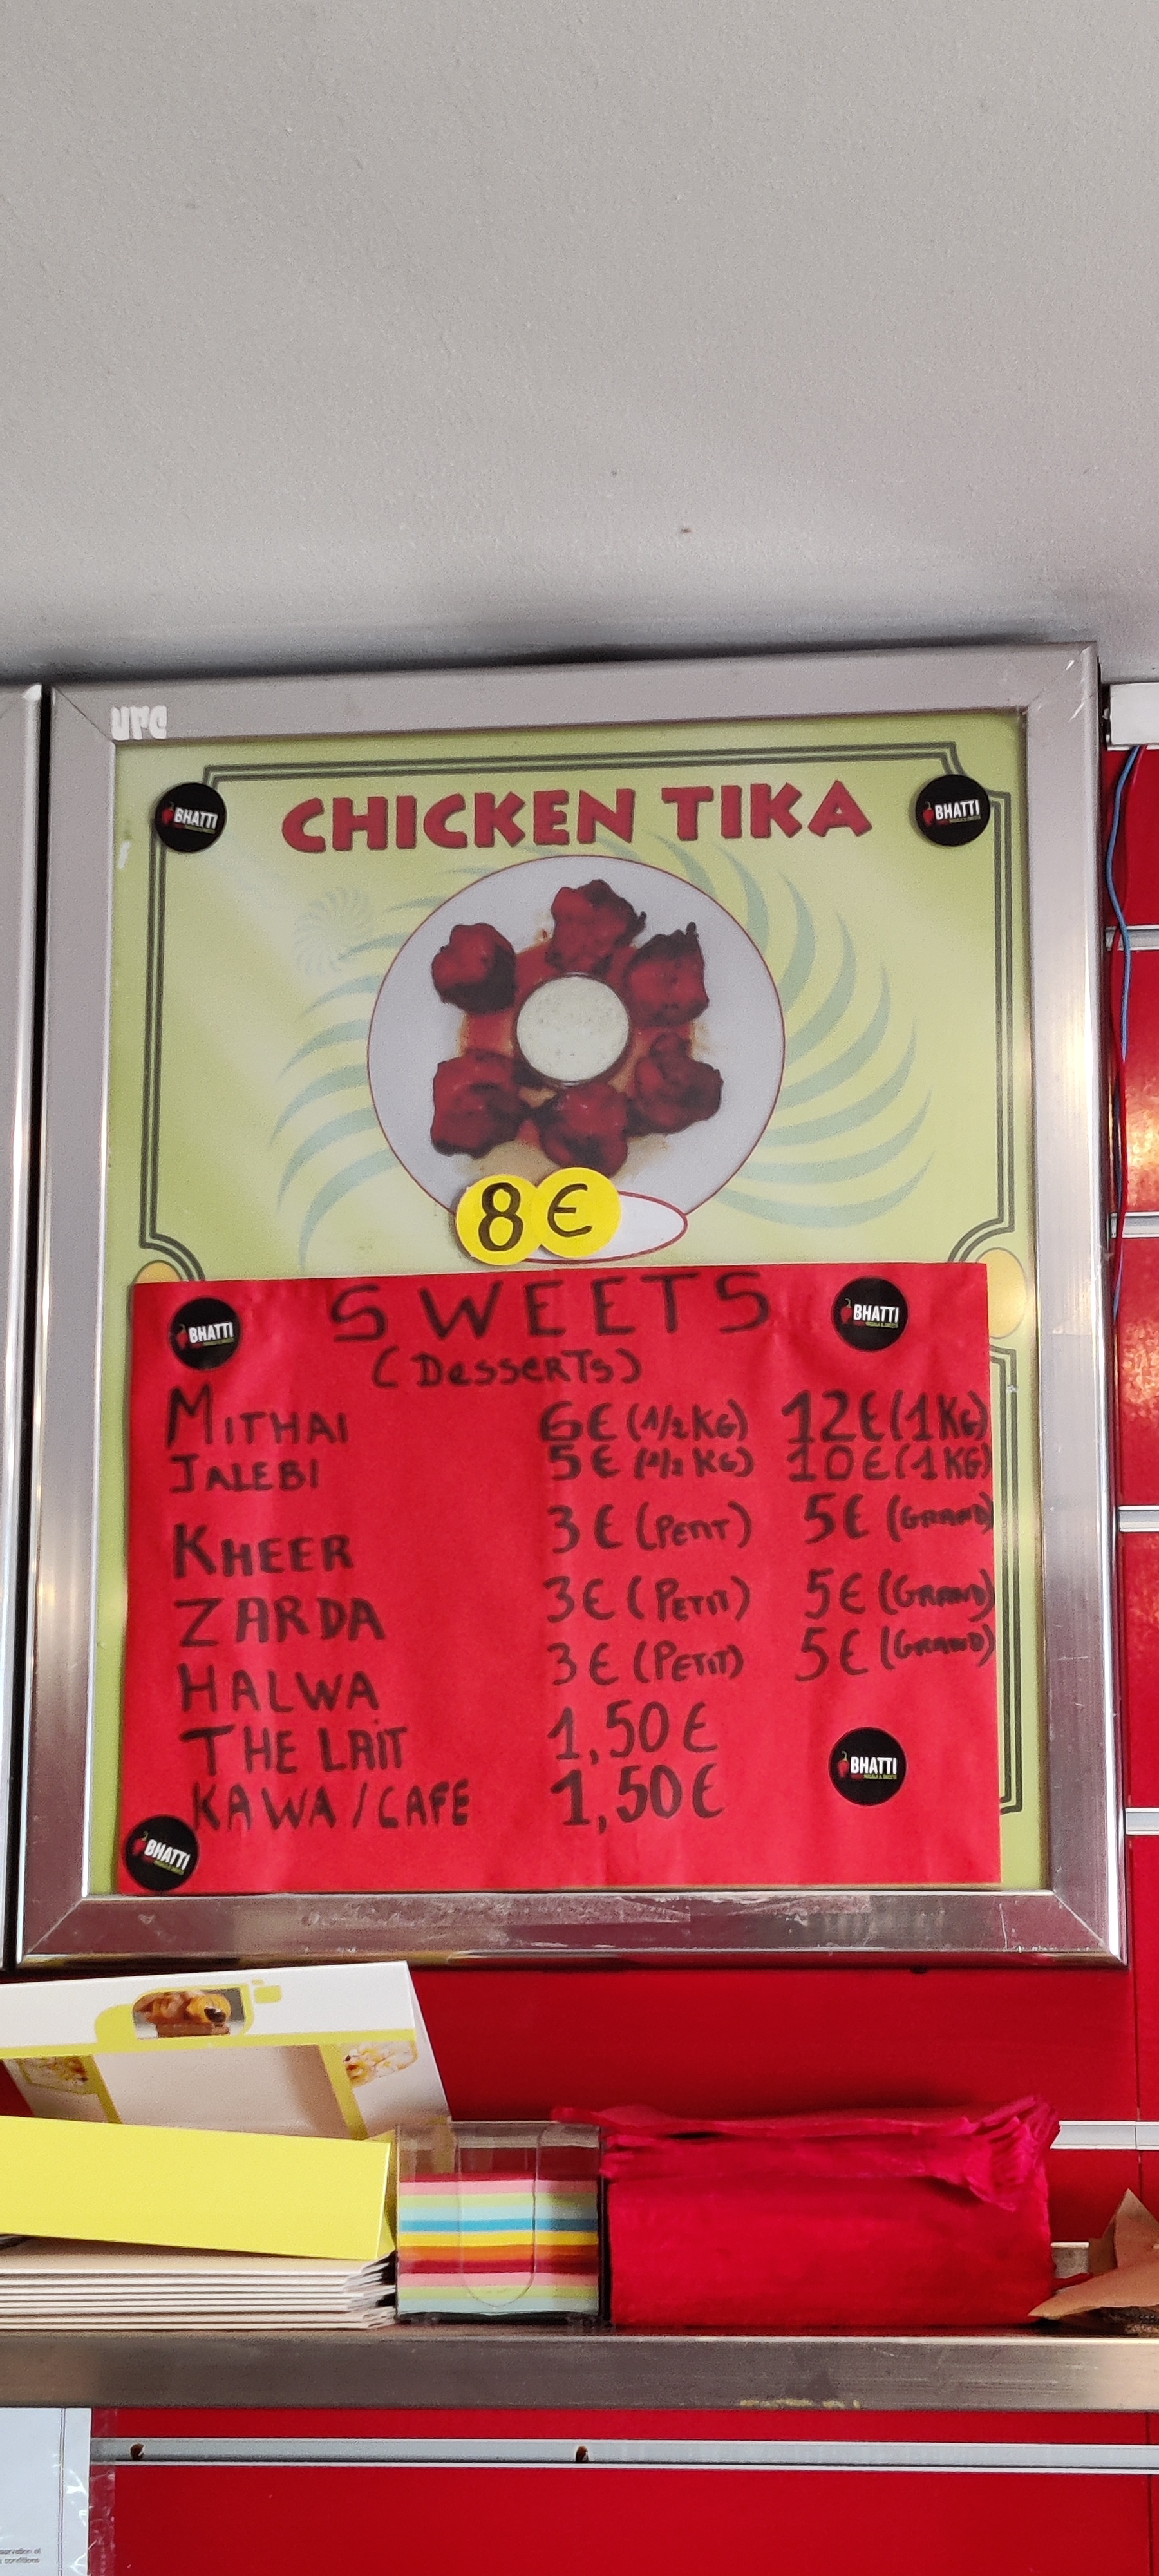 BHATTI
CHICKEN TIKA
BHATTI
8 €
BHATTI
SWEETS
BHATTI
(DESSERTS)
MITHAI 6€ (1/2 KG) 12€ (1KG)
JALEBI 5€ (1/2 KG) 10€ (1KG)
KHEER 3€ (PETIT) 5€ (GRAND)
ZARDA 3€ (PETIT) 5€ (GRAND)
HALWA 3€ (PETIT) 5€ (GRAND)
THE LAIT 1,50€
KAWA/CAFE 1,50€
BHATTI
BHATTI